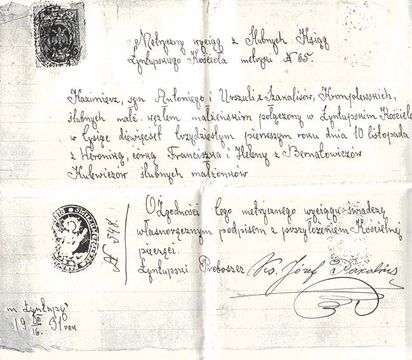 Metryczny wyciąg z Ślubnych Ksiąg
Łyntupskiego Kościoła metryki N 65.
Kazimierz, syn Antoniego i Urszuli z Szakalisów, Krumplewskich,
ślubnych małż. węzłem małżeńskim połączony w Łyntupskim Kościele
w tysiąc dziewięćset trzydziestym pierwszym roku dnia 10 listopada
z Weroniką, córką Franciszka i Heleny z Bernatowiczów
Kulewiczów ślubnych małżonków
O Zgodności tego metrycznego wyciągu świadczę
własnoręcznym podpisem z przyłożeniem Kościelnej
pieczęci.
Łyntupski Proboszcz Ks. Józef
N
m. Łyntupy
19 31 rok
16.